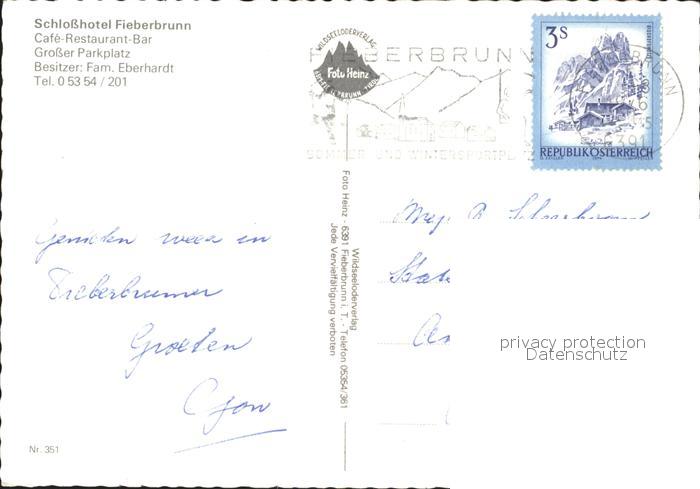 Schloßhotel Fieberbrunn
Café-Restaurant-Bar
Großer Parkplatz
Besitzer: Fam. Eberhardt
Tel. 0 53 54 / 201
WILDSEELODERVERLAG
Foto Heinz
FIEBERBRUNN
SOMMER- UND WINTERSPORTPL
3S
REPUBLIK ÖSTERREICH
6391
Wildseeloderverlag
Foto Heinz - 6391 Fieberbrunn i. T. - Telefon 05354/361
Jede Vervielfältigung verboten
Genieten weer in
Fieberbrunn
Groeten
Mej.
privacy protection
Datenschutz
Nr. 351